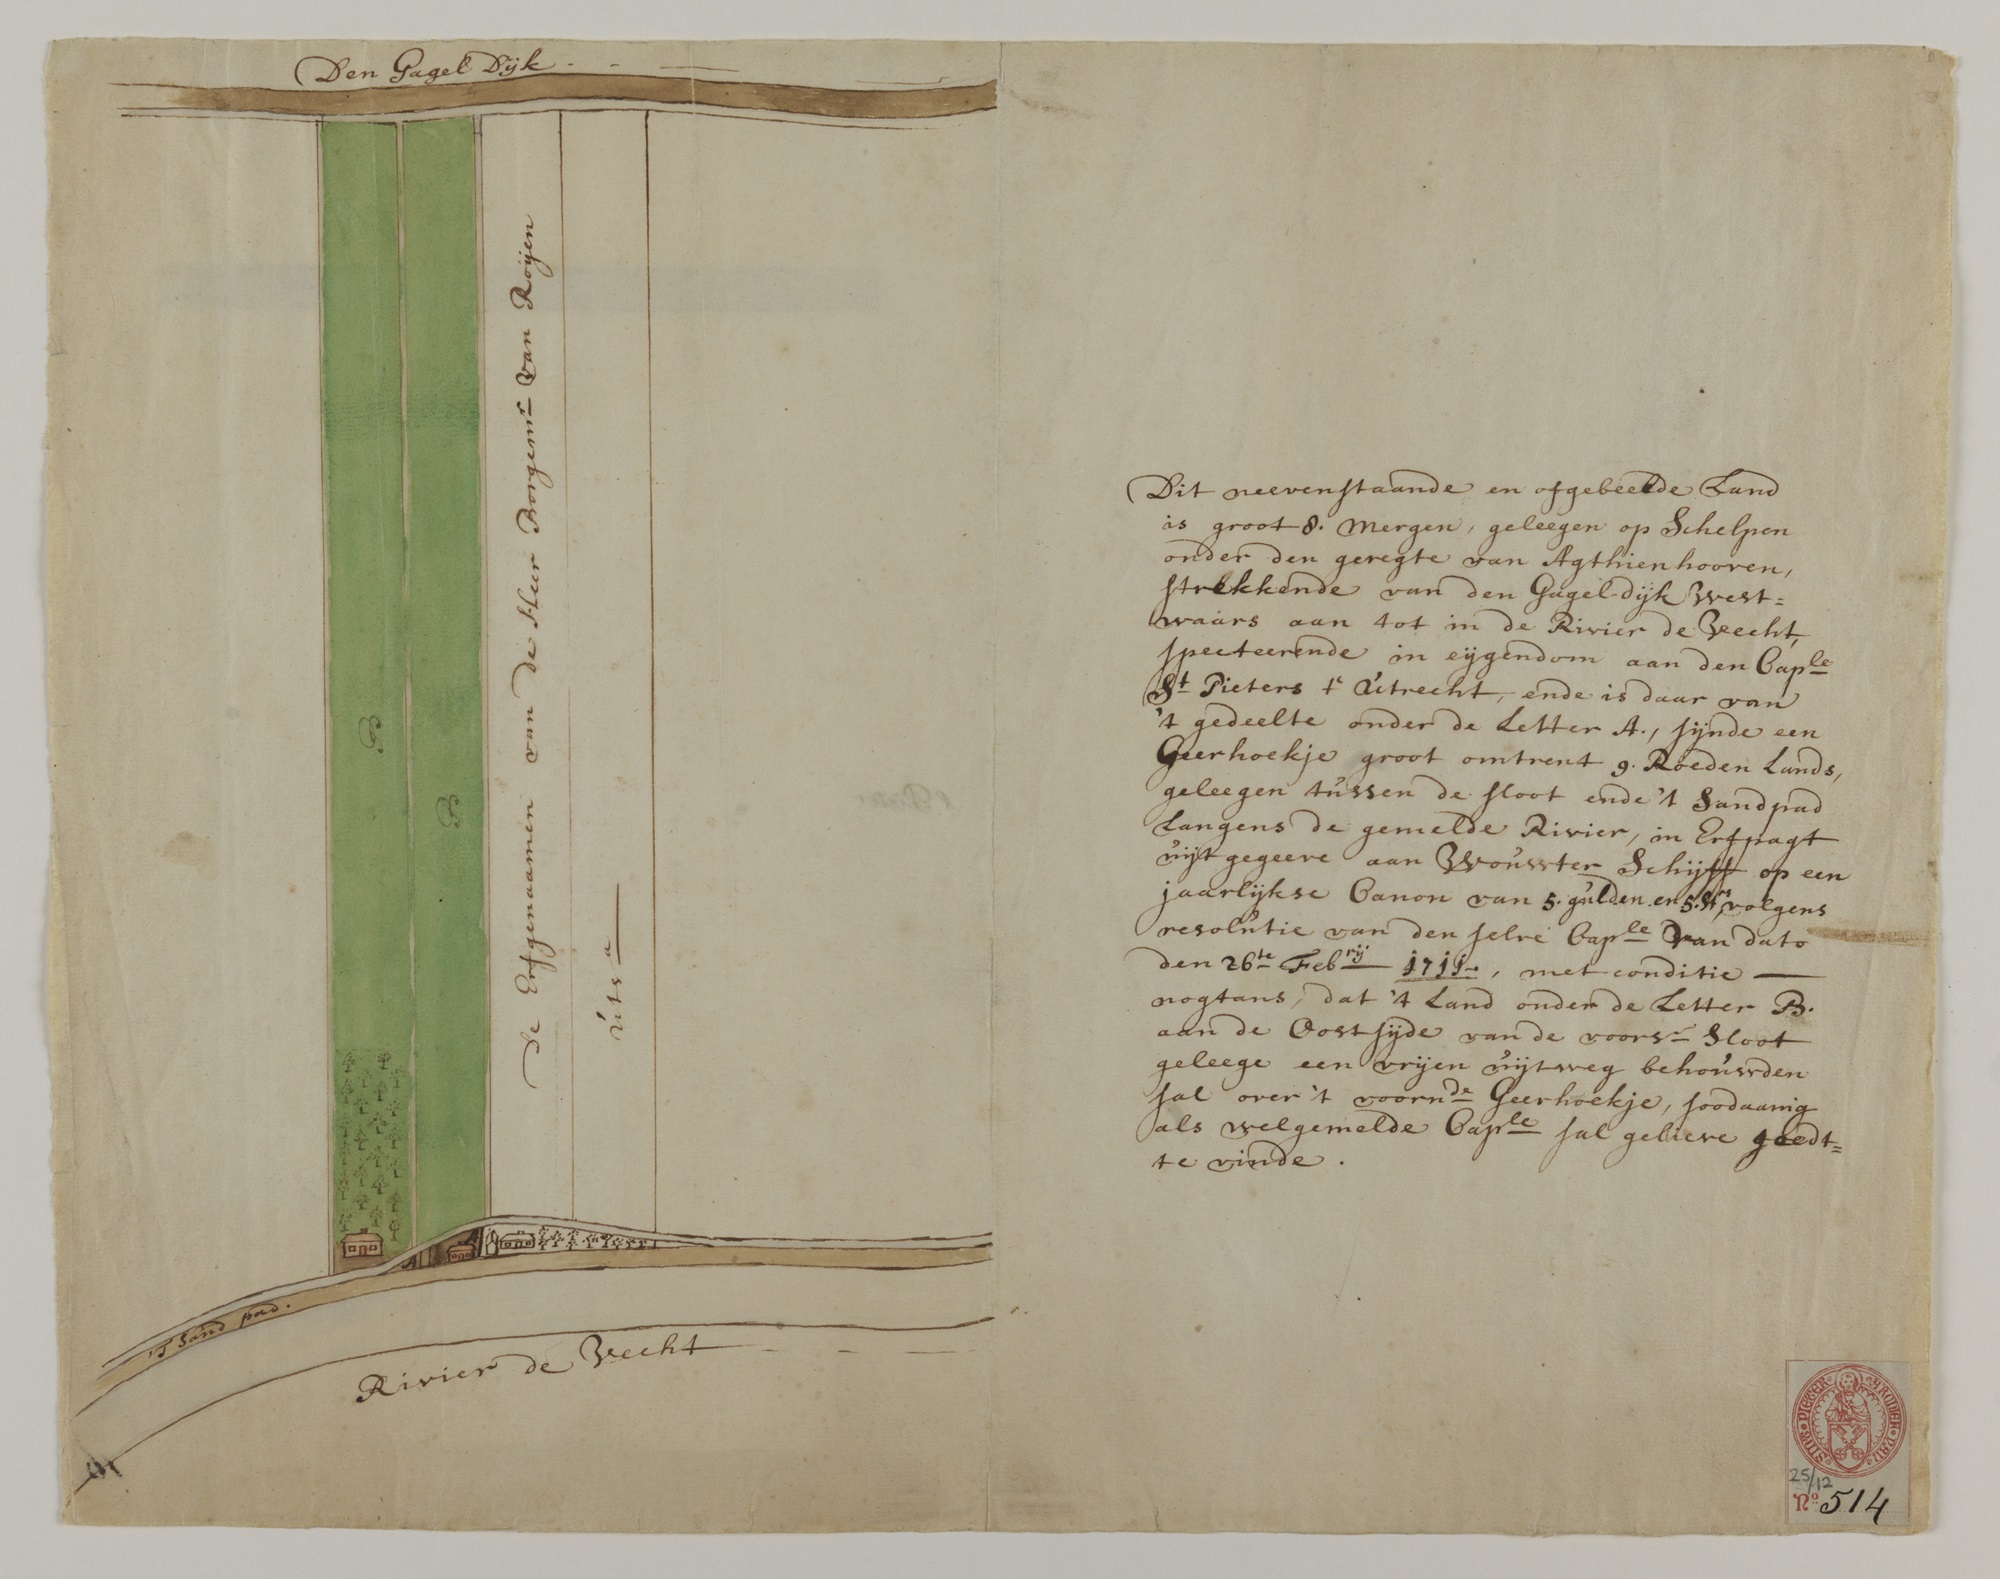 Den Gagel Dijk
B
B
De Erfgenaamen van de Heer Borgemr van Roijen
úts a
A
'T Sand pad.
Rivier de Vecht
Dit neevenstaande en afgebeelde Land
is groot 8. Mergen, geleegen op Schelpen
onder den geregte van Agthienhooven,
strekkende van den Gagel-dijk West=
waars aan tot in de Rivier de Vecht,
specteerende in eijgendom aan den Caple
St Pieters tr Útrecht, ende is daar van
't gedeelte onder de Letter A., sijnde een
Geerhoekje groot omtrent 9. Roeden Lands,
geleegen tússen de sloot ende 't Sandpad
Langens de gemelde Rivier, in Erfpagt
úijtgegeeve aan Woúwter Schijff op een
jaarlijkse Canon van 5. gúlden en 5. strs, volgens
resolútie van den selve Caple van dato
den 26te Febrij 1711, met conditie —
nogtans, dat 't Land onder de Letter B.
aan de Oostsijde van de voorsr Sloot
geleege een vrijen úijtweg behoúwden
sal over 't voornde Geerhoekje, soodaanig
als welgemelde Caple sal gelieve goedt=
te vinde.
SINTE PIETER
25/12
No 514